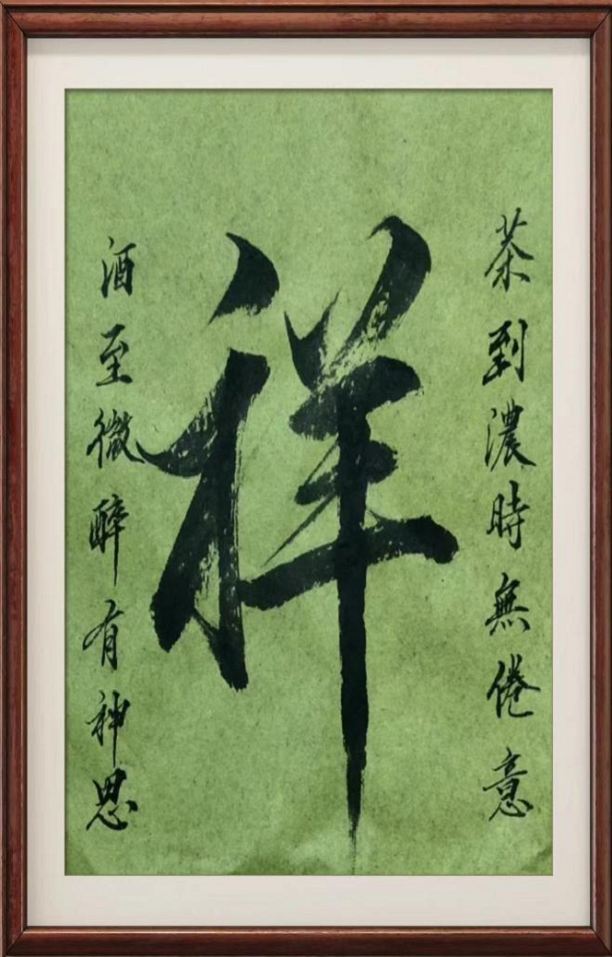 茶到濃時無倦意
祥
酒至微醉有神思